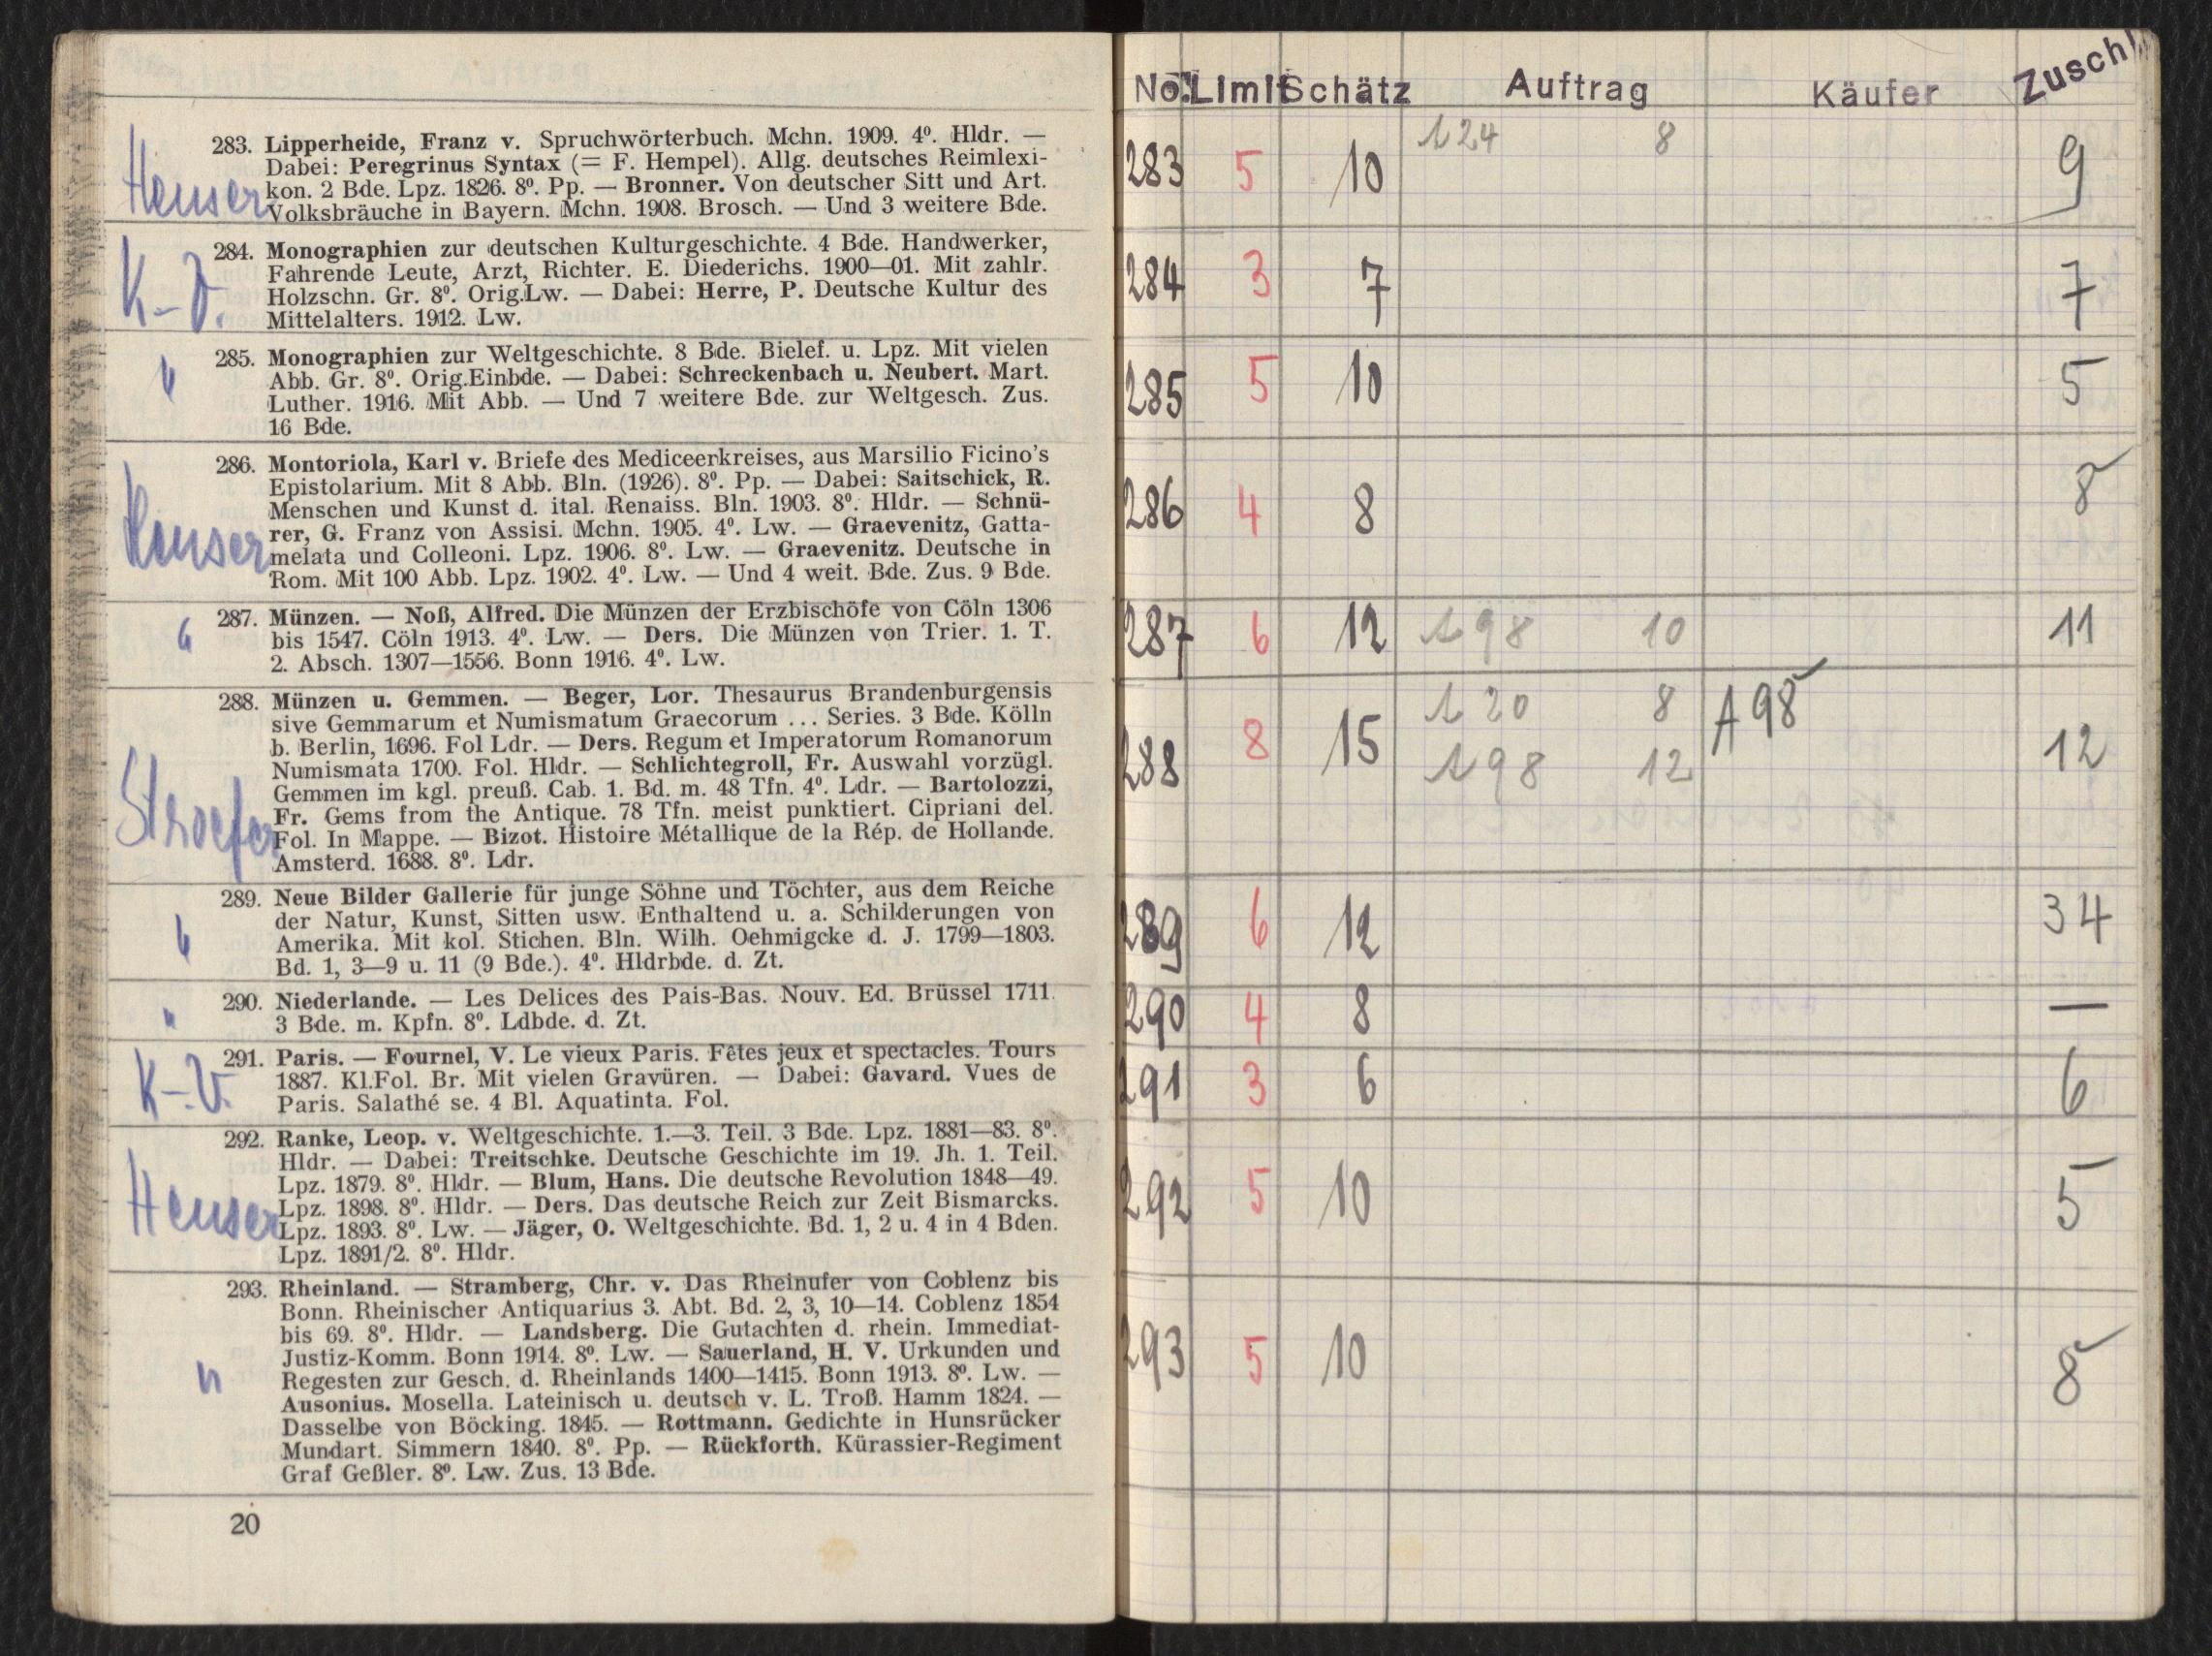 283. Lipperheide, Franz v. Spruchwörterbuch. Mchn. 1909. 4⁰. Hldr. —
Dabei: Peregrinus Syntax (= F. Hempel). Allg. deutsches Reimlexi-
kon. 2 Bde. Lpz. 1826. 8⁰. Pp. — Bronner. Von deutscher Sitt und Art.
Volksbräuche in Bayern. Mchn. 1908. Brosch. — Und 3 weitere Bde.
Heuser
284. Monographien zur deutschen Kulturgeschichte. 4 Bde. Handwerker,
Fahrende Leute, Arzt, Richter. E. Diederichs. 1900—01. Mit zahlr.
Holzschn. Gr. 8⁰. Orig.Lw. — Dabei: Herre, P. Deutsche Kultur des
Mittelalters. 1912. Lw.
285. Monographien zur Weltgeschichte. 8 Bde. Bielef. u. Lpz. Mit vielen
Abb. Gr. 8⁰. Orig.Einbde. — Dabei: Schreckenbach u. Neubert. Mart.
Luther. 1916. Mit Abb. — Und 7 weitere Bde. zur Weltgesch. Zus.
16 Bde.
286. Montoriola, Karl v. Briefe des Mediceerkreises, aus Marsilio Ficino's
Epistolarium. Mit 8 Abb. Bln. (1926). 8⁰. Pp. — Dabei: Saitschick, R.
Menschen und Kunst d. ital. Renaiss. Bln. 1903. 8⁰. Hldr. — Schnü-
rer, G. Franz von Assisi. Mchn. 1905. 4⁰. Lw. — Graevenitz, Gatta-
melata und Colleoni. Lpz. 1906. 8⁰. Lw. — Graevenitz. Deutsche in
Rom. Mit 100 Abb. Lpz. 1902. 4⁰. Lw. — Und 4 weit. Bde. Zus. 9 Bde.
Heuser
287. Münzen. — Noß, Alfred. Die Münzen der Erzbischöfe von Cöln 1306
bis 1547. Cöln 1913. 4⁰. Lw. — Ders. Die Münzen von Trier. 1. T.
2. Absch. 1307—1556. Bonn 1916. 4⁰. Lw.
288. Münzen u. Gemmen. — Beger, Lor. Thesaurus Brandenburgensis
sive Gemmarum et Numismatum Graecorum ... Series. 3 Bde. Kölln
b. Berlin, 1696. Fol Ldr. — Ders. Regum et Imperatorum Romanorum
Numismata 1700. Fol. Hldr. — Schlichtegroll, Fr. Auswahl vorzügl.
Gemmen im kgl. preuß. Cab. 1. Bd. m. 48 Tfn. 4⁰. Ldr. — Bartolozzi,
Fr. Gems from the Antique. 78 Tfn. meist punktiert. Cipriani del.
Fol. In Mappe. — Bizot. Histoire Métallique de la Rép. de Hollande.
Amsterd. 1688. 8⁰. Ldr.
Stroefer
289. Neue Bilder Gallerie für junge Söhne und Töchter, aus dem Reiche
der Natur, Kunst, Sitten usw. Enthaltend u. a. Schilderungen von
Amerika. Mit kol. Stichen. Bln. Wilh. Oehmigcke d. J. 1799—1803.
Bd. 1, 3—9 u. 11 (9 Bde.). 4⁰. Hldrbde. d. Zt.
290. Niederlande. — Les Delices des Pais-Bas. Nouv. Ed. Brüssel 1711.
3 Bde. m. Kpfn. 8⁰. Ldbde. d. Zt.
291. Paris. — Fournel, V. Le vieux Paris. Fêtes jeux et spectacles. Tours
1887. Kl.Fol. Br. Mit vielen Gravüren. — Dabei: Gavard. Vues de
Paris. Salathé se. 4 Bl. Aquatinta. Fol.
K-.V.
292. Ranke, Leop. v. Weltgeschichte. 1.—3. Teil. 3 Bde. Lpz. 1881—83. 8⁰.
Hldr. — Dabei: Treitschke. Deutsche Geschichte im 19. Jh. 1. Teil.
Lpz. 1879. 8⁰. Hldr. — Blum, Hans. Die deutsche Revolution 1848—49.
Lpz. 1898. 8⁰. Hldr. — Ders. Das deutsche Reich zur Zeit Bismarcks.
Lpz. 1893. 8⁰. Lw. — Jäger, O. Weltgeschichte. Bd. 1, 2 u. 4 in 4 Bden.
Lpz. 1891/2. 8⁰. Hldr.
Heuser
293. Rheinland. — Stramberg, Chr. v. Das Rheinufer von Coblenz bis
Bonn. Rheinischer Antiquarius 3. Abt. Bd. 2, 3, 10—14. Coblenz 1854
bis 69. 8⁰. Hldr. — Landsberg. Die Gutachten d. rhein. Immediat-
Justiz-Komm. Bonn 1914. 8⁰. Lw. — Sauerland, H. V. Urkunden und
Regesten zur Gesch. d. Rheinlands 1400—1415. Bonn 1913. 8⁰. Lw. —
Ausonius. Mosella. Lateinisch u. deutsch v. L. Troß. Hamm 1824. —
Dasselbe von Böcking. 1845. — Rottmann. Gedichte in Hunsrücker
Mundart. Simmern 1840. 8⁰. Pp. — Rückforth. Kürassier-Regiment
Graf Geßler. 8⁰. Lw. Zus. 13 Bde.
20
No. Limit Schätz Auftrag Käufer Zuschl
283 5 10 24 8 9
284 3 7 7
285 5 10 5
286 4 8 8
287 6 12 98 10 11
288 8 15 20 8 A 98 12
98 12
289 6 12 34
290 4 8 —
291 3 6 6
292 5 10 5
293 5 10 8